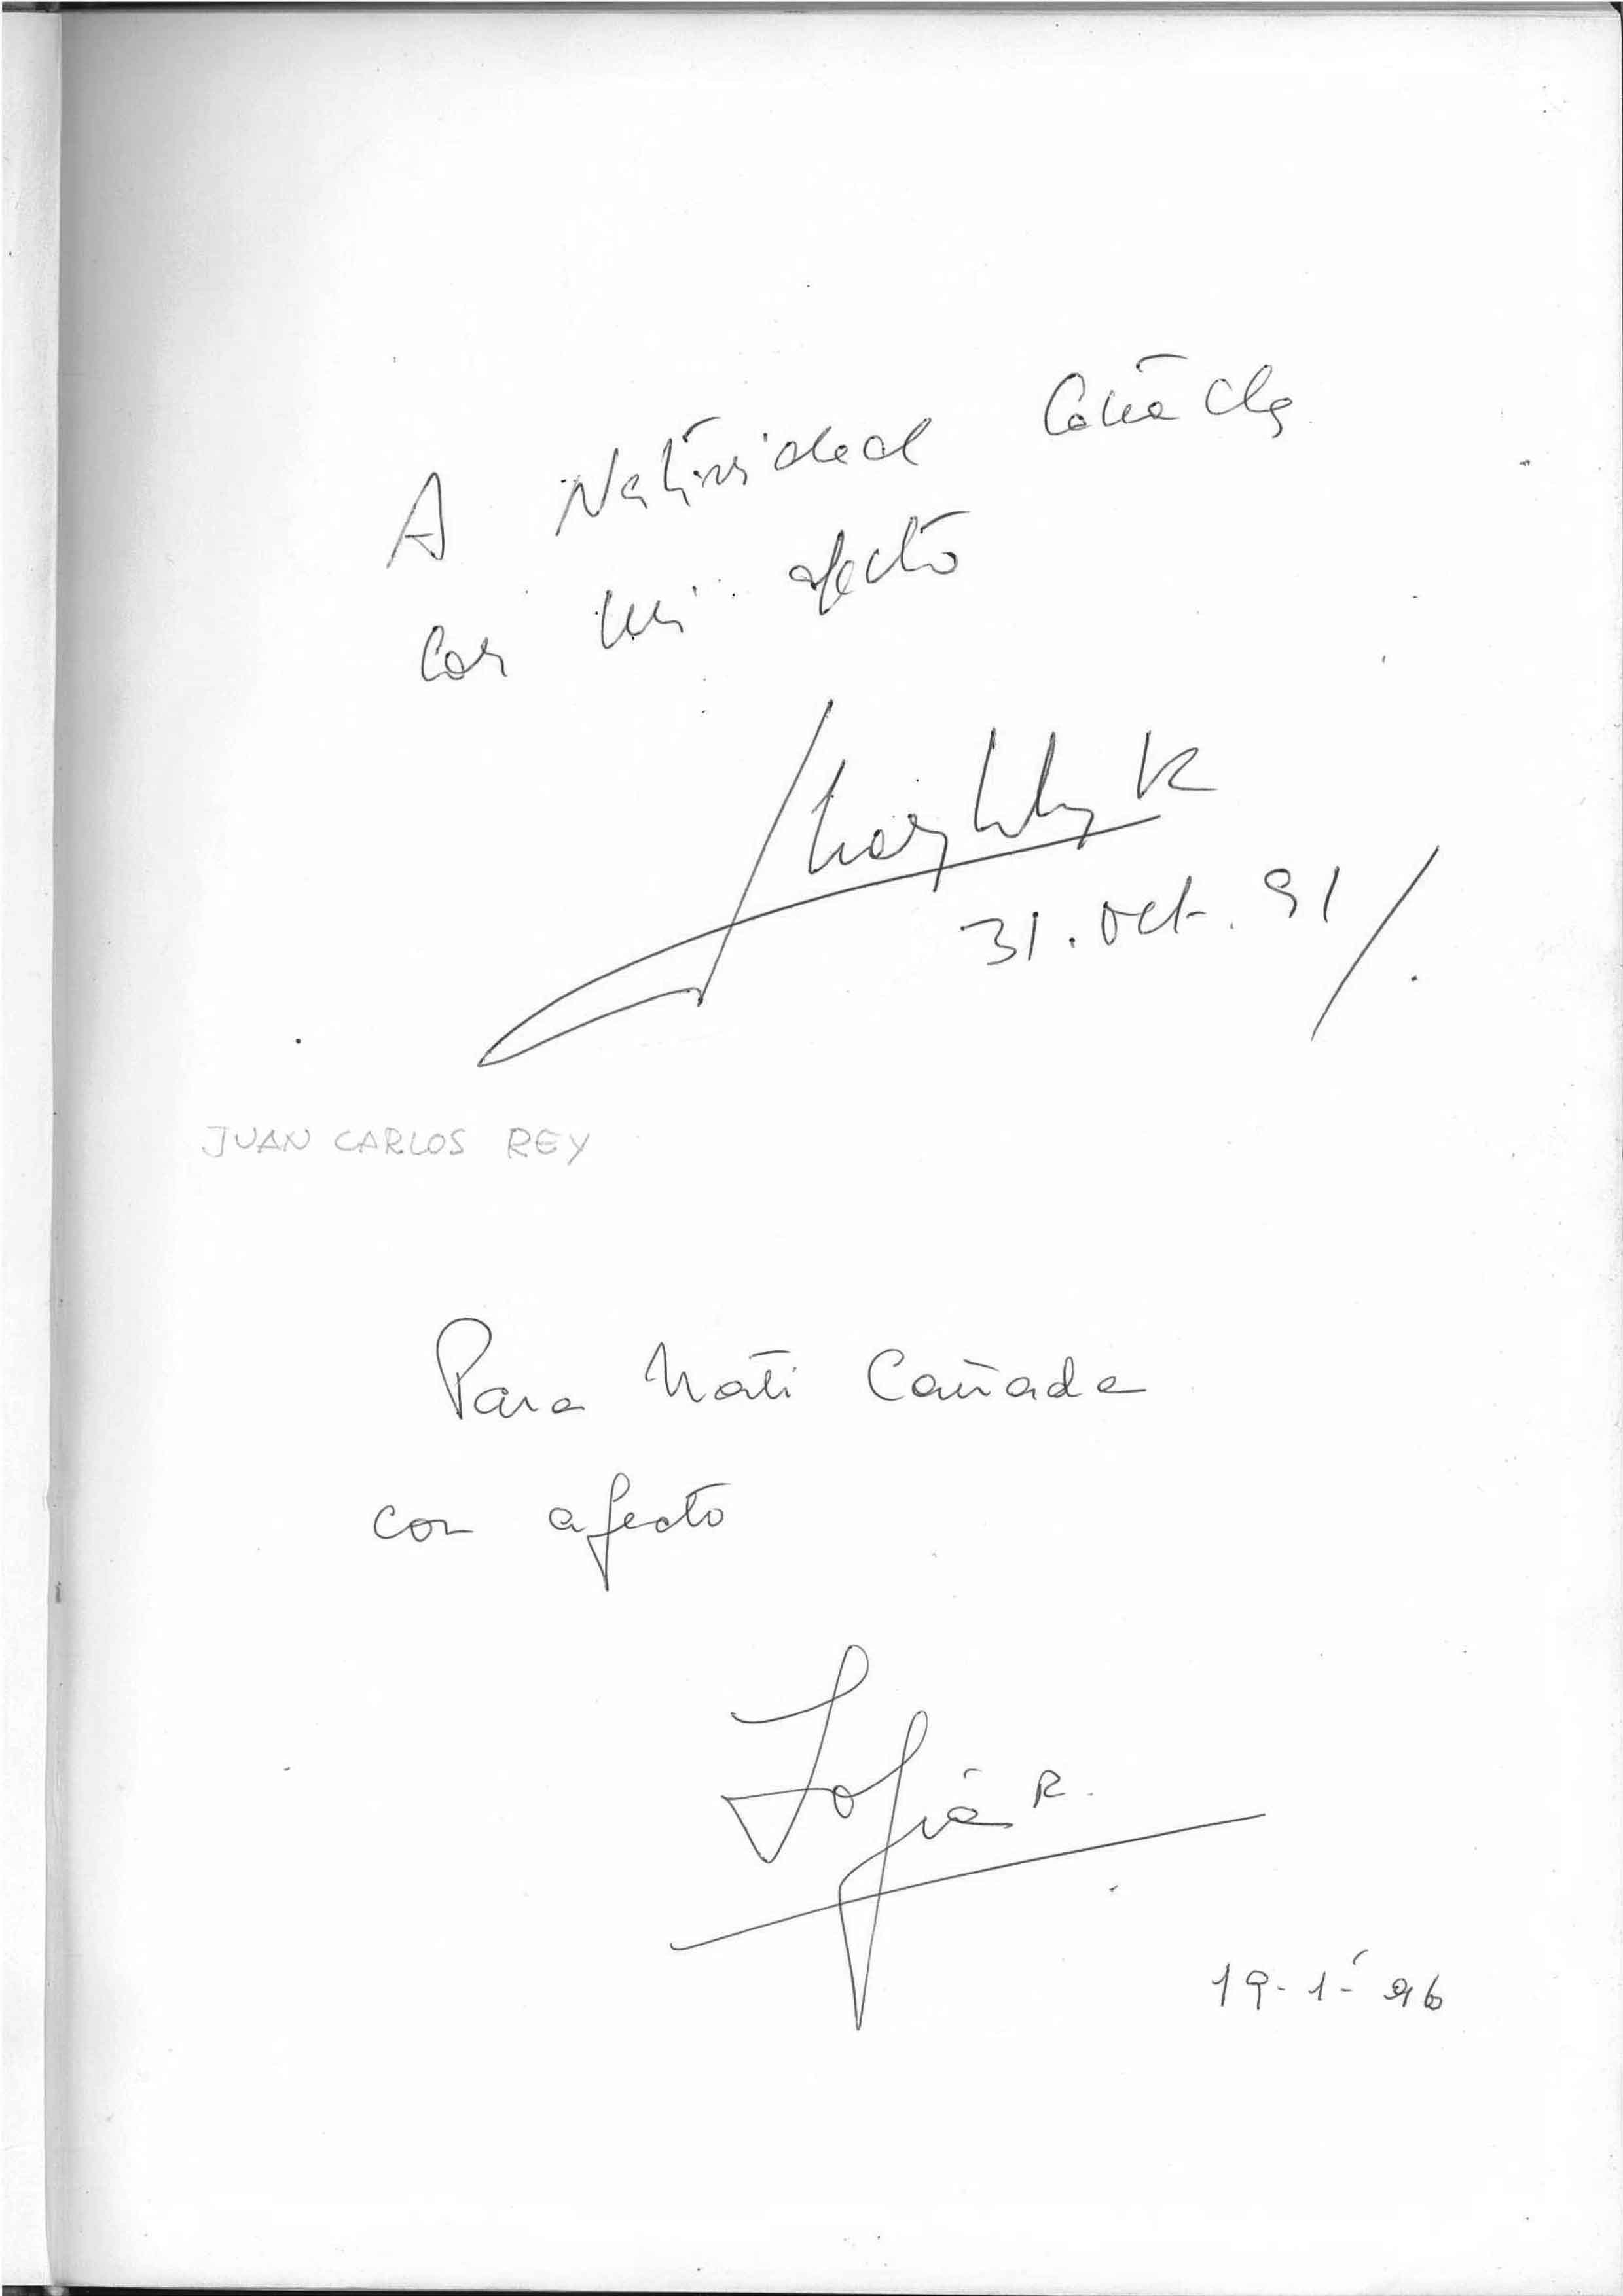 A Natividad Cañada
con mi afecto
Juan Carlos R
31. oct. 91
JUAN CARLOS REY
Para Nati Cañada
con afecto
Sofía R.
19-1-96